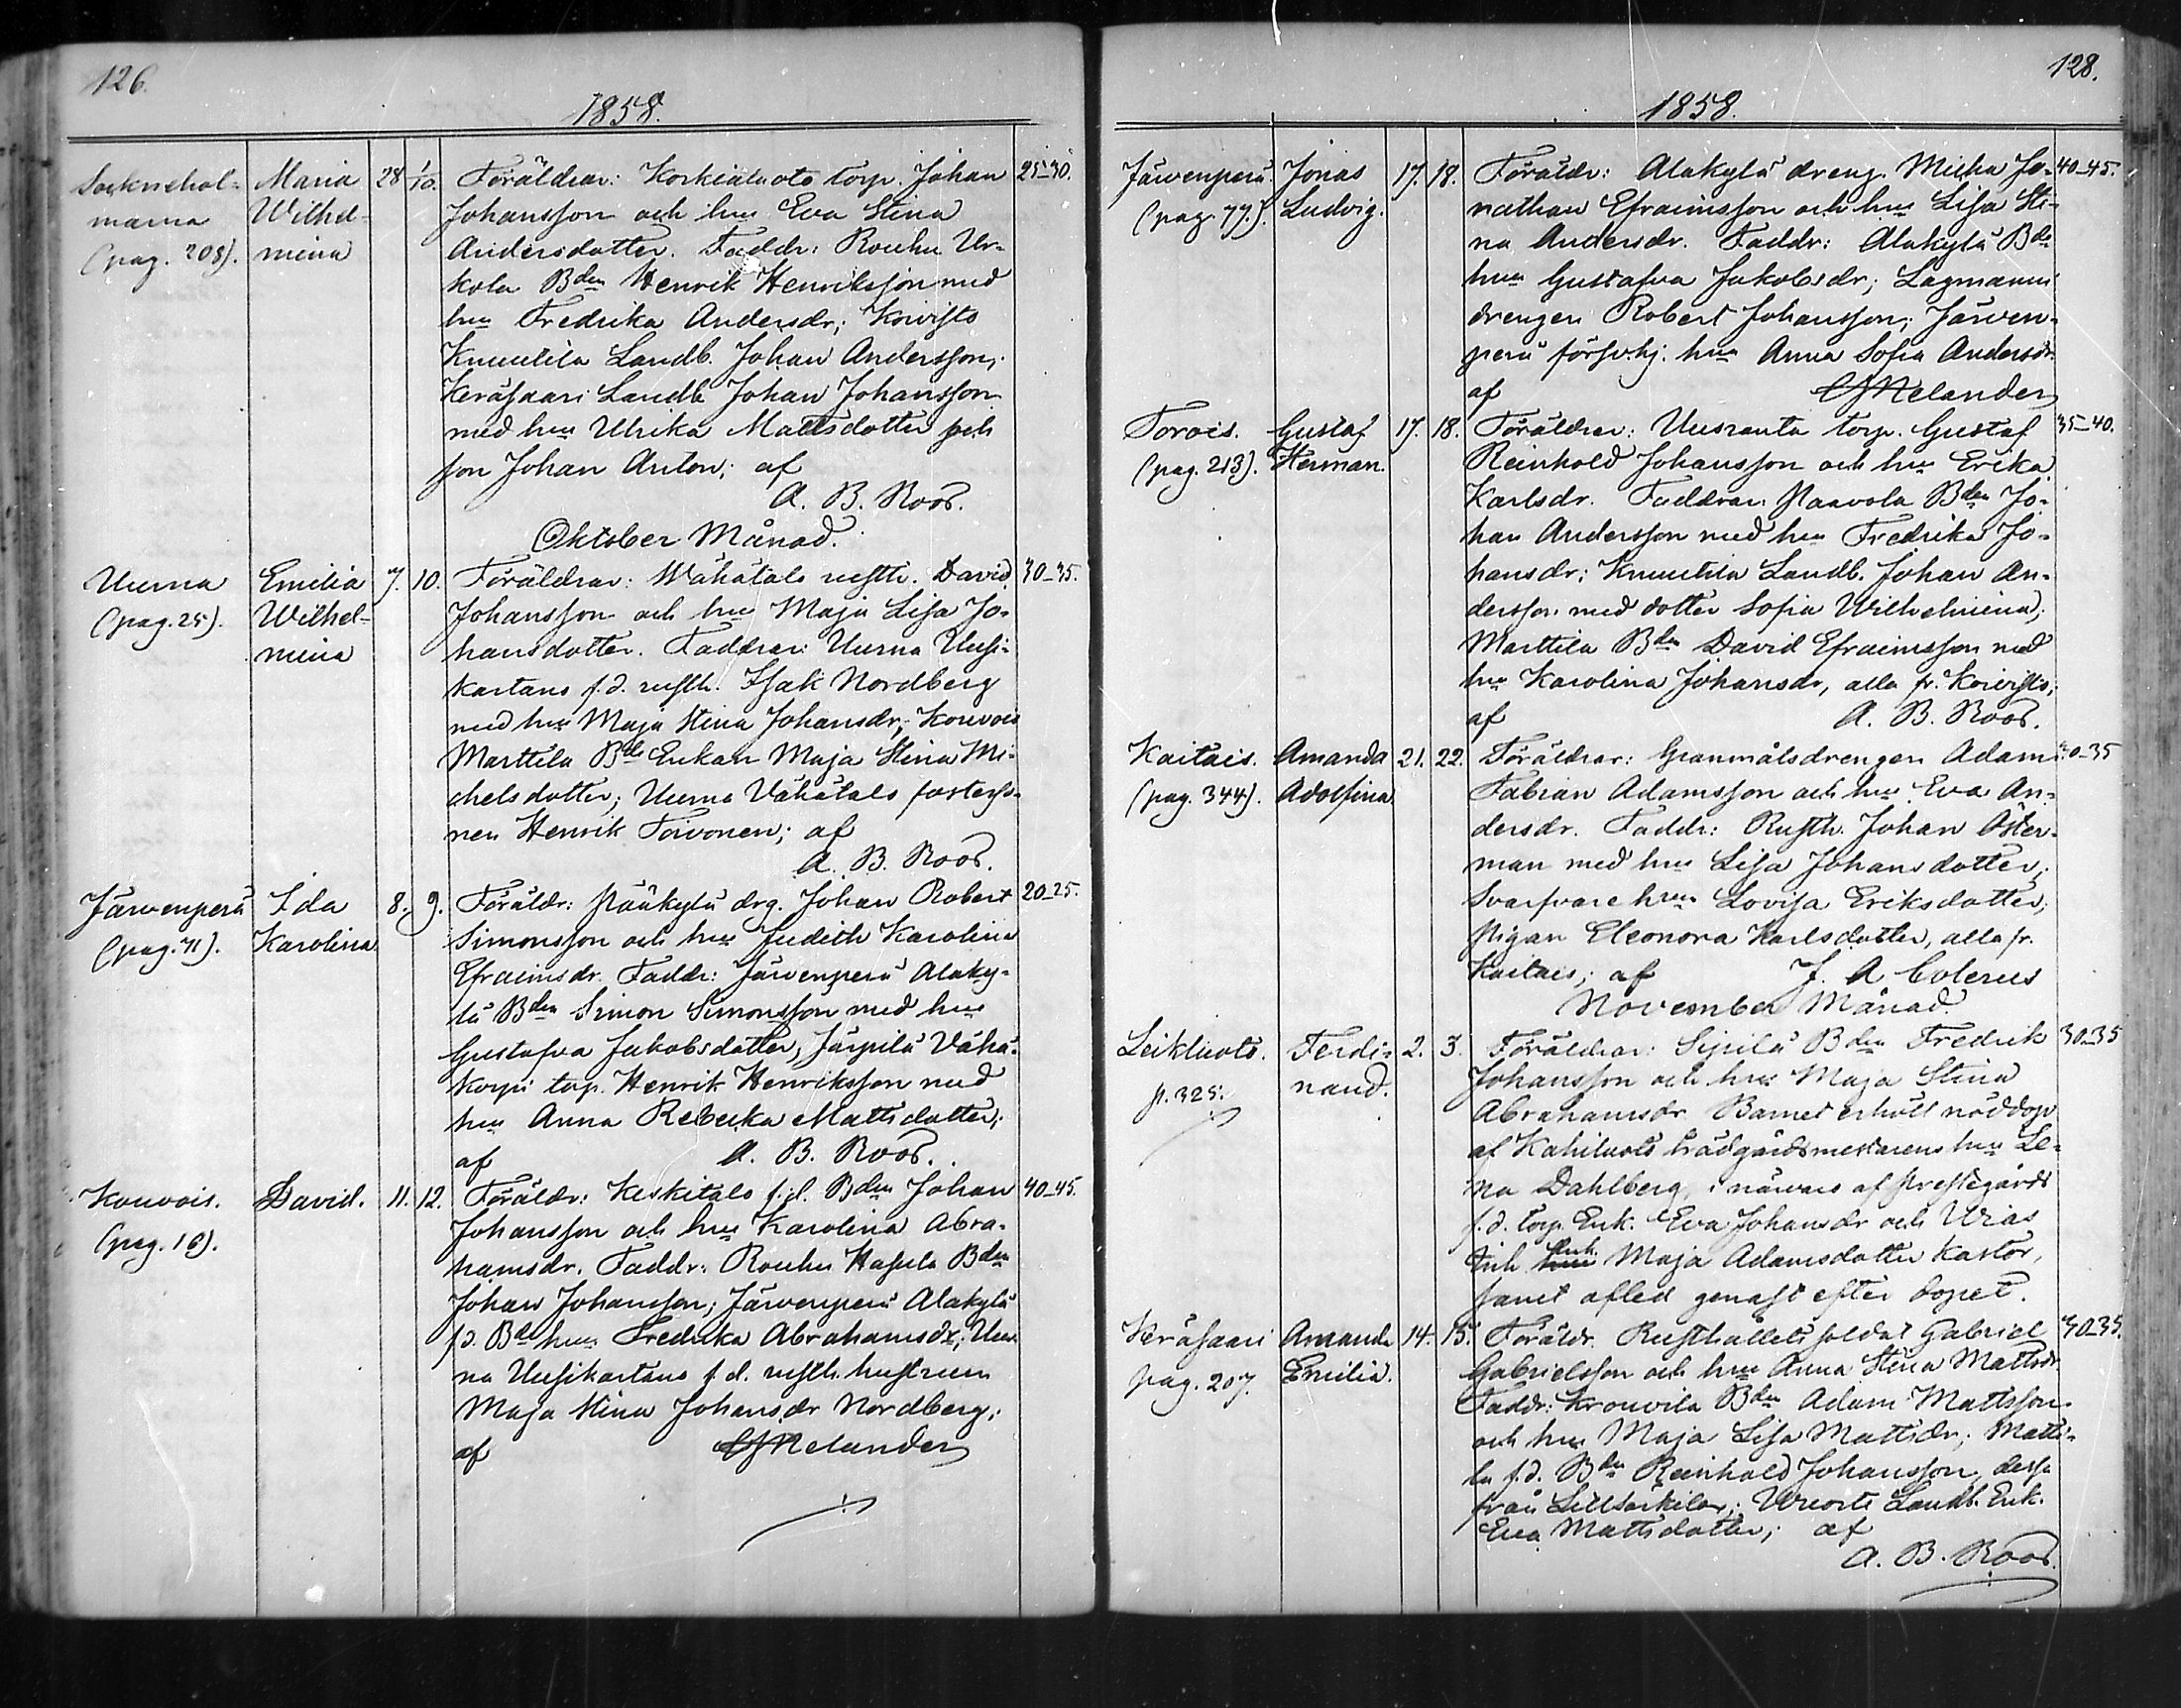 126.
1858.
Maria 28 1/10. Föräldrar: Korkialuoto torp. Johan 25-30.
mama Wilhel- Johansson och hru Eva Stina
(pag. 208). mina Andersdotter. Faddr: Rouhu Ur-
kola Bden Henrik Henriksson med
hru Fredrika Andersdr; Koivisto
Knuutila Landb. Johan Andersson;
Keräsaari Landb Johan Johansson
med hru Ulrika Mattsdotter och
son Johan Anton; af
A. B. Roos.
Oktober Månad.
Uurna Emilia 7. 10. Föräldrar: Wähätalo rusth. David 30-35.
(pag. 25). Wilhel- Johansson och hru Maja Lisa Jo-
mina hansdotter. Faddrar: Uurna Uusi-
kartano f.d. rusth. Isak Nordberg
med hru Maja Stina Johansdr; Kouvois
Marttila Bde Enkan Maja Stina Mi-
chelsdotter; Uurna Vähätalo fosterso-
nen Henrik Toivonen; af
A. B. Roos.
Järvenperä Ida 8. 9. Föräldr: Pääkylä drg. Johan Robert 20-25.
(pag. 71). Karolina Simonsson och hru Judith Karolina
Efraimsdr. Faddr: Järvenperä Alaky-
lä Bden Simon Simonsson med hru
Gustafva Jakobsdotter; Järpilä Vähä-
korpi torp. Henrik Henriksson med
hru Anna Rebecka Mattsdotter;
af A. B. Roos.
Kouvois. David. 11. 12. Föräldr: Keskitalo f.d. Bden Johan 40-45.
(pag. 16). Johansson och hru Karolina Abra-
hamsdr. Faddr: Rouhu Hapula Bden
Johan Johansson; Järvenperä Alakylä
f.d. Bde hru Fredrika Abrahamsdr; Uur-
na Uusikartano f.d. rusth. hustrun
Maja Stina Johansdr Nordberg;
af Melander
128.
1858.
Järvenperä. Jonas 17. 18. Föräldr: Alakylä dreng. Micha Jo- 40-45.
(pag. 77.). Ludvig. nathan Efraimsson och hru Lisa Sti-
na Andersdr. Faddr: Alakylä Bde
hru Gustafva Jakobsdr; Lagmanni
drengen Robert Johansson; Järven-
perä förswhj. hru Anna Sofia Andersdr.
af Melander
Torois. Gustaf 17. 18. Föräldrar: Uusranta torp. Gustaf 35-40.
(pag. 213). Herman. Reinhold Johansson och hru Erika
Karlsdr. Faddrar: Paavola Bden Jo-
han Andersson med hru Fredrika Jo-
hansdr; Knuutila Landb. Johan An-
dersson med dotter Sofia Wilhelmina;
Marttila Bden David Efraimsson med
hru Karolina Johansdr, alla fr. Koivisto;
af A. B. Roos.
Kaitais. Amanda 21. 22. Föräldrar: Granmålsdrengen Adam 30-35
(pag. 344). Adolfina Fabian Adamsson och hru Eva An-
dersdr. Faddr: Rusth. Johan Öster-
man med hru Lisa Johansdotter;
Svarfvare hrun Lovisa Eriksdotter;
Pigan Eleonora Karlsdotter, alla fr.
Kaitais; af J. A Colerus
November Månad.
Leikluoto. Ferdi- 2. 3. Föräldrar: Sipilä Bden Fredrik 30-35
p. 325. nand. Johansson och hru Maja Stina
Abrahamsdr Barnet erhöll nöddop
af Kahiluoto trädgårdsmestarens hru Le-
na Dahlberg, i närvaro af Prestegårds
f.d. torp. Enk. Eva Johansdr och Wias
Enk. Maja Adamsdotter Kastor,
samt afled genast efter dopet.
Keräsaari Amanda 14. 15. Föräldr. Rusthållets soldat Gabriel 30-35.
pag. 207. Emilia. Gabrielsson och hru Anna Stina Mattsdr
Faddr: Krouvila Bden Adam Mattsson
och hru Maja Lisa Mattsdr; Matti-
la f.d. Bden Reinhold Johansson, dessa
från ; Landb. Enk.
Eva Mattsdotter; af
A. B. Roos.